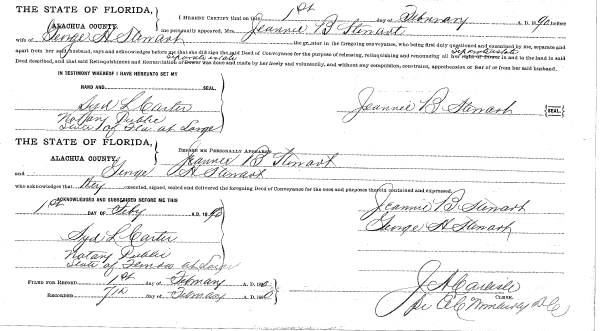 THE STATE OF FLORIDA,
ALACHUA COUNTY.
I HEREBY CERTIFY that on this 1st day of February A. D. 1890 before
me personally appeared, Mrs. Jeannie B Stewart
wife of George H Stewart the grantor in the foregoing conveyance, who being first duly questioned and examined by me, separate and
apart from her said husband, says and acknowledges before me that she did sign the said Deed of Conveyance for the purpose of releasing, relinquishing and renouncing all her right of Dower in and to the land in said
separate estate
Deed described, and that said Relinquishment and Renunciation of Dower was done and made by her freely and voluntarily, and without any compulsion, constraint, apprehension or fear of or from her said husband.
separate estate
IN TESTIMONY WHEREOF I HAVE HEREUNTO SET MY
HAND AND SEAL.
Syd L Carter
Notary Public
State of Fla at Large
Jeannie B Stewart
SEAL.
THE STATE OF FLORIDA,
ALACHUA COUNTY.
BEFORE ME PERSONALLY APPEARED
Jeannie B Stewart
and George H Stewart
who acknowledges that they executed, signed, sealed and delivered the foregoing Deed of Conveyance for the uses and purposes therein contained and expressed.
ACKNOWLEDGED AND SUBSCRIBED BEFORE ME THIS
1st DAY OF Feby A.D. 1890
Jeannie B Stewart
George H Stewart
Syd L Carter
Notary Public
State of at Large
FILED FOR RECORD 1st day of February A. D. 189
RECORDED 7th day of February A. D. 189
J A Carlisle
CLERK.
D C